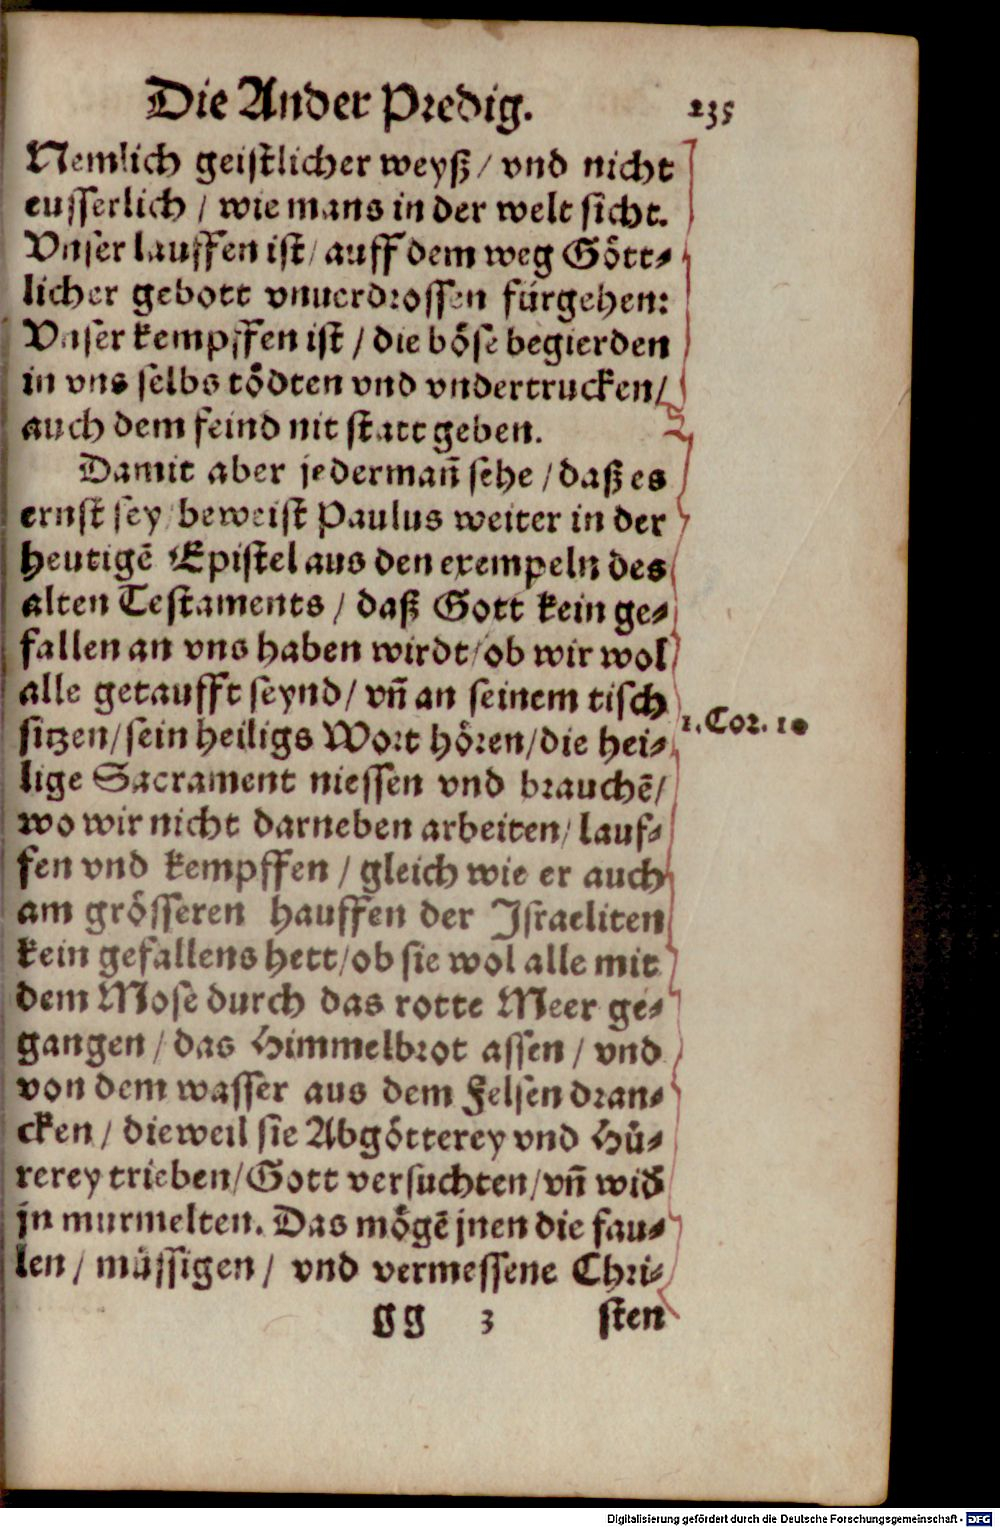 Die Ander Predig. 235
Nemlich geistlicher weyß / vnd nicht
eusserlich / wie mans in der welt sicht.
Vnser lauffen ist / auff dem weg Gött⸗
licher gebott vnuerdrossen fürgehen:
Vnser kempffen ist / die böse begierden
in vns selbs tödten vnd vndertrucken /
auch dem feind nit statt geben.
Damit aber jederman̄ sehe / daß es
ernst sey / beweist Paulus weiter in der
heutigē Epistel aus den exempeln des
alten Testaments / daß Gott kein ge⸗
fallen an vns haben wirdt / ob wir wol
alle getaufft seynd / vn̄ an seinem tisch
1. Cor. 10
sitzen / sein heiligs Wort hören / die hei⸗
lige Sacrament niessen vnd brauchē /
wo wir nicht darneben arbeiten / lauf⸗
fen vnd kempffen / gleich wie er auch
am grösseren hauffen der Israeliten
kein gefallens hett / ob sie wol alle mit
dem Mose durch das rotte Meer ge⸗
gangen / das Himmelbrot assen / vnd
von dem wasser aus dem Felsen dran⸗
cken / dieweil sie Abgötterey vnd Hů⸗
rerey trieben / Gott versuchten / vn̄ wid̄
jn murmelten. Das mögē jnen die fau⸗
len / müssigen / vnd vermessene Chri⸗
gg 3 sten
Digitalisierung gefördert durch die Deutsche Forschungsgemeinschaft - DFG